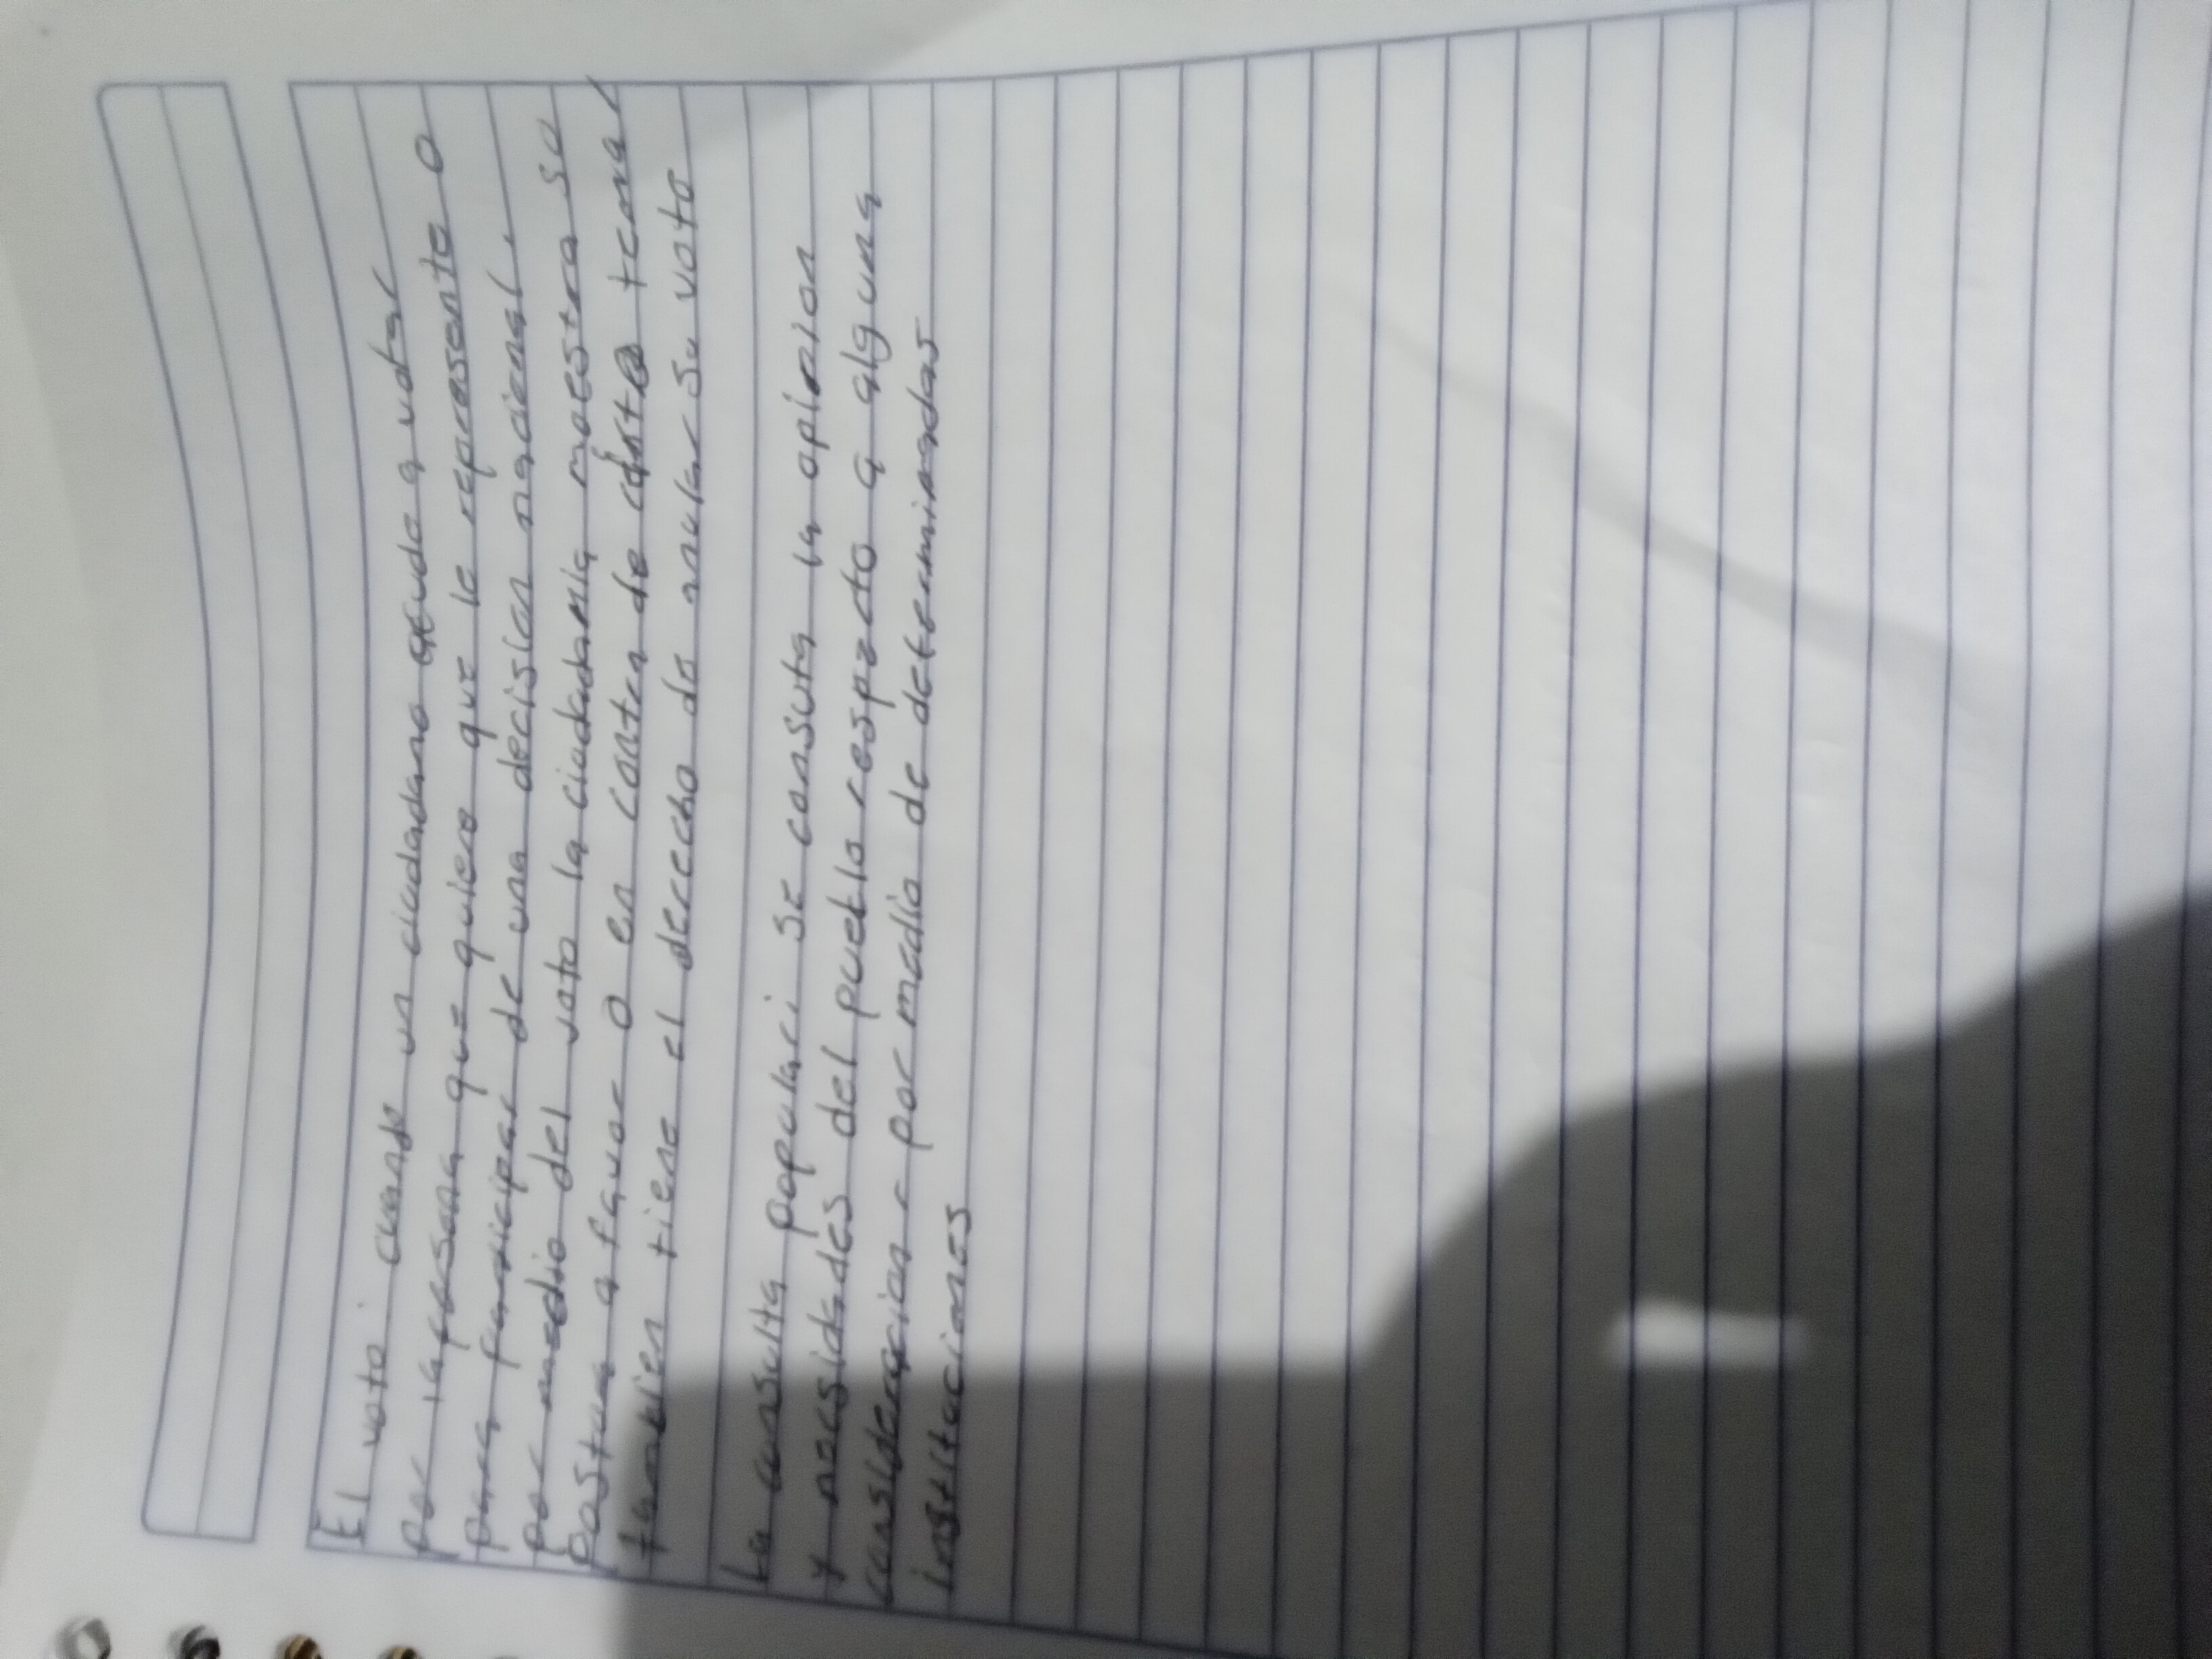 El voto: cuando un ciudadano acude a votar
por la persona que quiere que le represente o
para participar de una decisión nacional.
por medio del voto la ciudadania muestra su
postura a favor o en contra de cierto tema,
tambien tiene el derecho de anular su voto
La consulta popular: se consuta la opinion
y necsidades del pueblo respecto a alguna
consideracion por medio de determinadas
institaciones